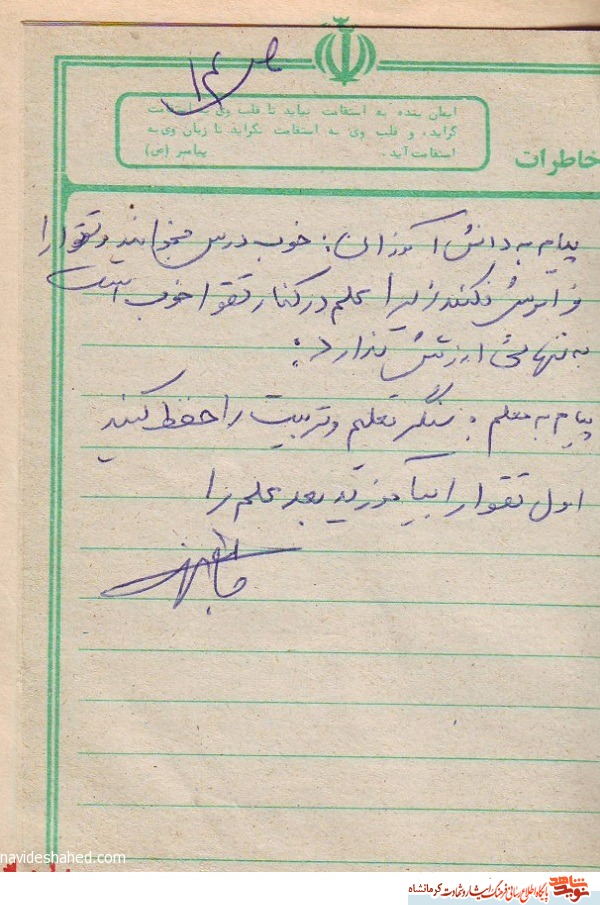 ص ۱۴
ایمان بنده به استقامت نیاید تا قلب وی به استقامت
گراید، و قلب وی به استقامت نگراید تا زبان وی به
استقامت آید. پیامبر (ص)
خاطرات
پیام به دانش آموزان: خوب درس بخوانید و تقوا را
فراموش نکنند زیرا علم در کنار تقوا خوب است
به تنهائی ارزش ندارد:
پیام به معلم: سنگر تعلیم و تربیت را حفظ کنید
اول تقوا را بیاموزید بعد علم را
navideshahed.com
نوید شاهد پایگاه اطلاع رسانی فرهنگ ایثار و شهادت کرمانشاه